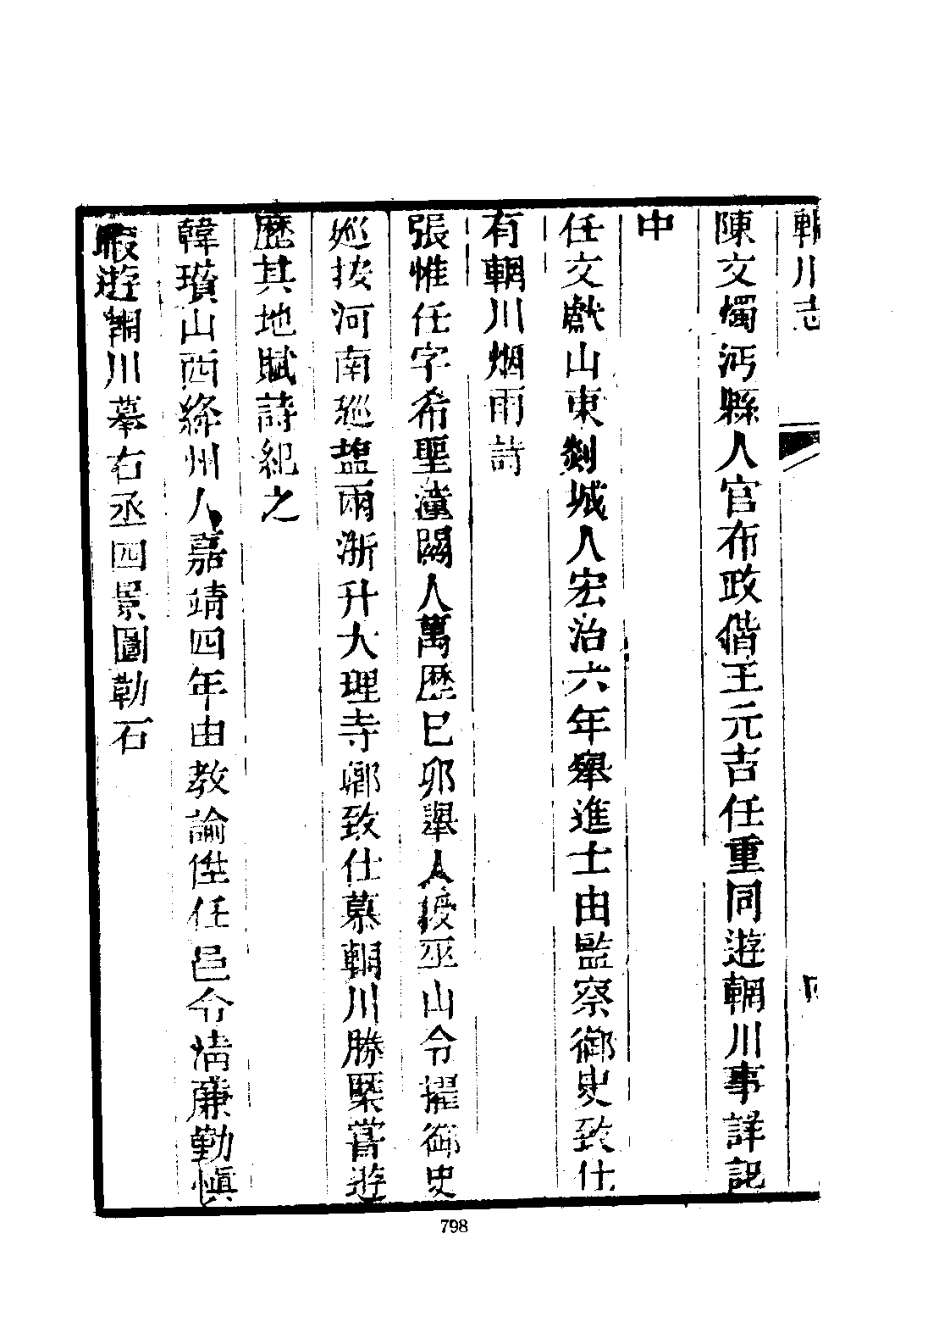 輞川志
四
陳文燭沔縣人官布政偕王元吉任重同遊輞川事詳記
中
任文獻山東郯城人宏治六年舉進士由監察御史致仕
有輞川烟雨詩
張惟任字希聖潼關人萬歷已卯舉人授巫山令擢御史
巡按河南廵鹽兩浙升大理寺卿致仕慕輞川勝槩嘗遊
歷其地賦詩紀之
韓瓚山西絳州人嘉靖四年由教諭陞任邑令清廉勤慎
暇遊輞川摹右丞四景圖勒石
798